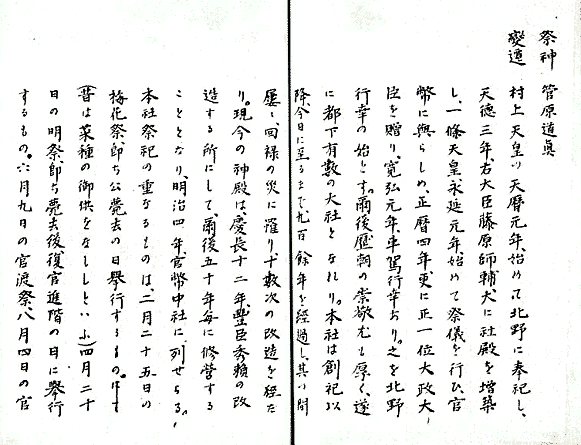 祭神 菅原道眞
變遷 村上天皇ノ天暦元年、始めて北野に奉祀し、
天徳三年、右大臣藤原師輔大に社殿を増築
し、一條天皇永延元年始めて祭儀を行ひ官
幣に與らしめ、正暦四年更に正一位大政大
臣を贈り、寛弘元年、車駕行幸あり。之を北野
行幸の始とす。爾後歴朝の崇敬尤も厚く、遂
に都下有數の大社となれり。本社は創祀以
降、今日に至るまで九百餘年を經過し、其の間
屡〻回禄の災に罹り、十數次の改造を經た
り。現今の神殿は、慶長十二年、豐臣秀頼の改
造する所にして、爾後五十年毎に修營する
こととなり、明治四年官幣中社に列せらる。
本社祭祀の重なるものは、二月二十五日の
梅花祭、即ち公薨去の日擧行するもの。
昔は菜種の御供をなししといふ 四月二十
日の明祭、即ち薨去後復官進階の日に擧行
するもの。六月九日の官渡祭、八月四日の官